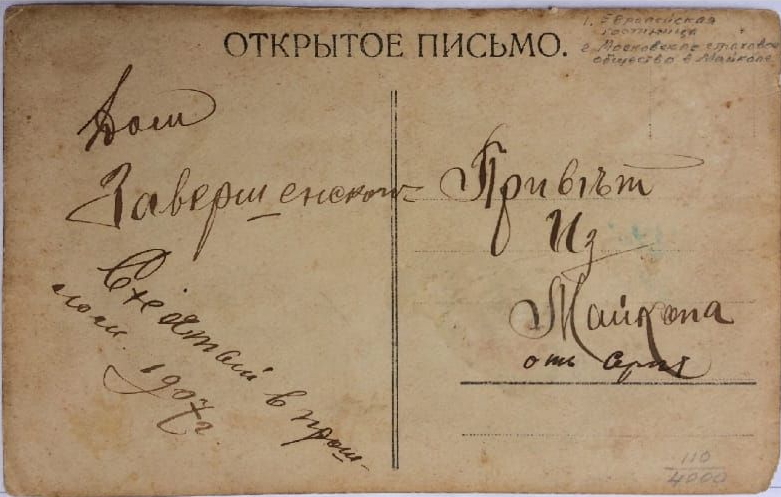 ОТКРЫТОЕ ПИСЬМО.
1. Европейская
гостиница
2. Московское страховое
общество в Майкопе
Завершенской
в прош-
1907 г.
Привѣт
Из
Майкопа
отъ
110
4000